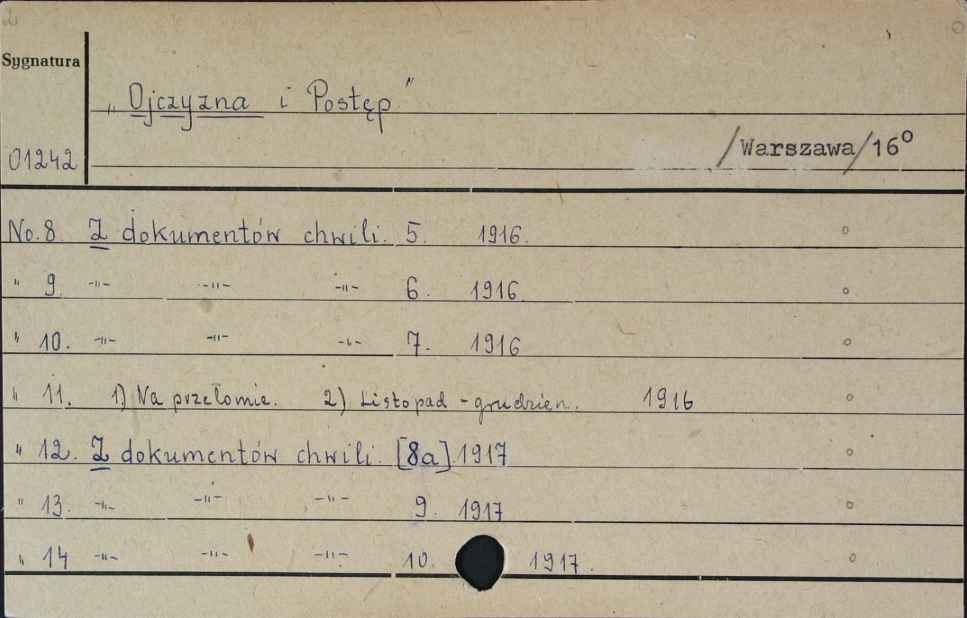 Sygnatura
„Ojczyzna i Postęp"
01242
/Warszawa/16°
No. 8. Z dokumentów chwili. 5. 1916.
" 9. -"- -"- -"- 6. 1916.
" 10. -"- -"- -"- 7. 1916
" 11. 1) Na przełomie. 2) Listopad - grudzien. 1916
" 12. Z dokumentów chwili. [8a] 1917
" 13. -"- -"- -"- 9. 1917
" 14 -"- -"- -"- 10. 1917.